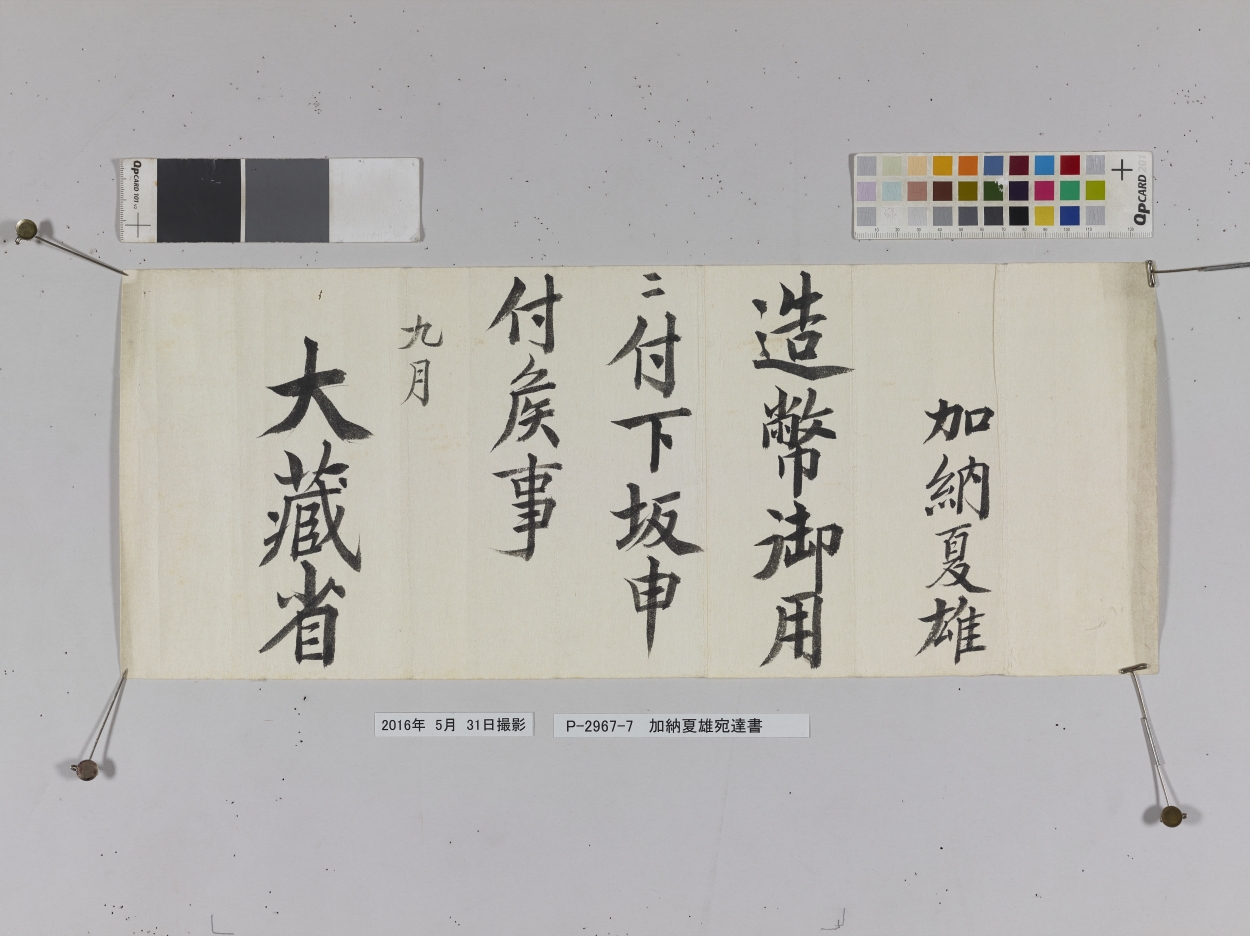 加納夏雄
造幣御用
ニ付下坂申
付矦事
九月
大藏省
2016年 5月 31日撮影
P-2967-7 加納夏雄宛達書
QpCARD 101 v3
QpCARD 201